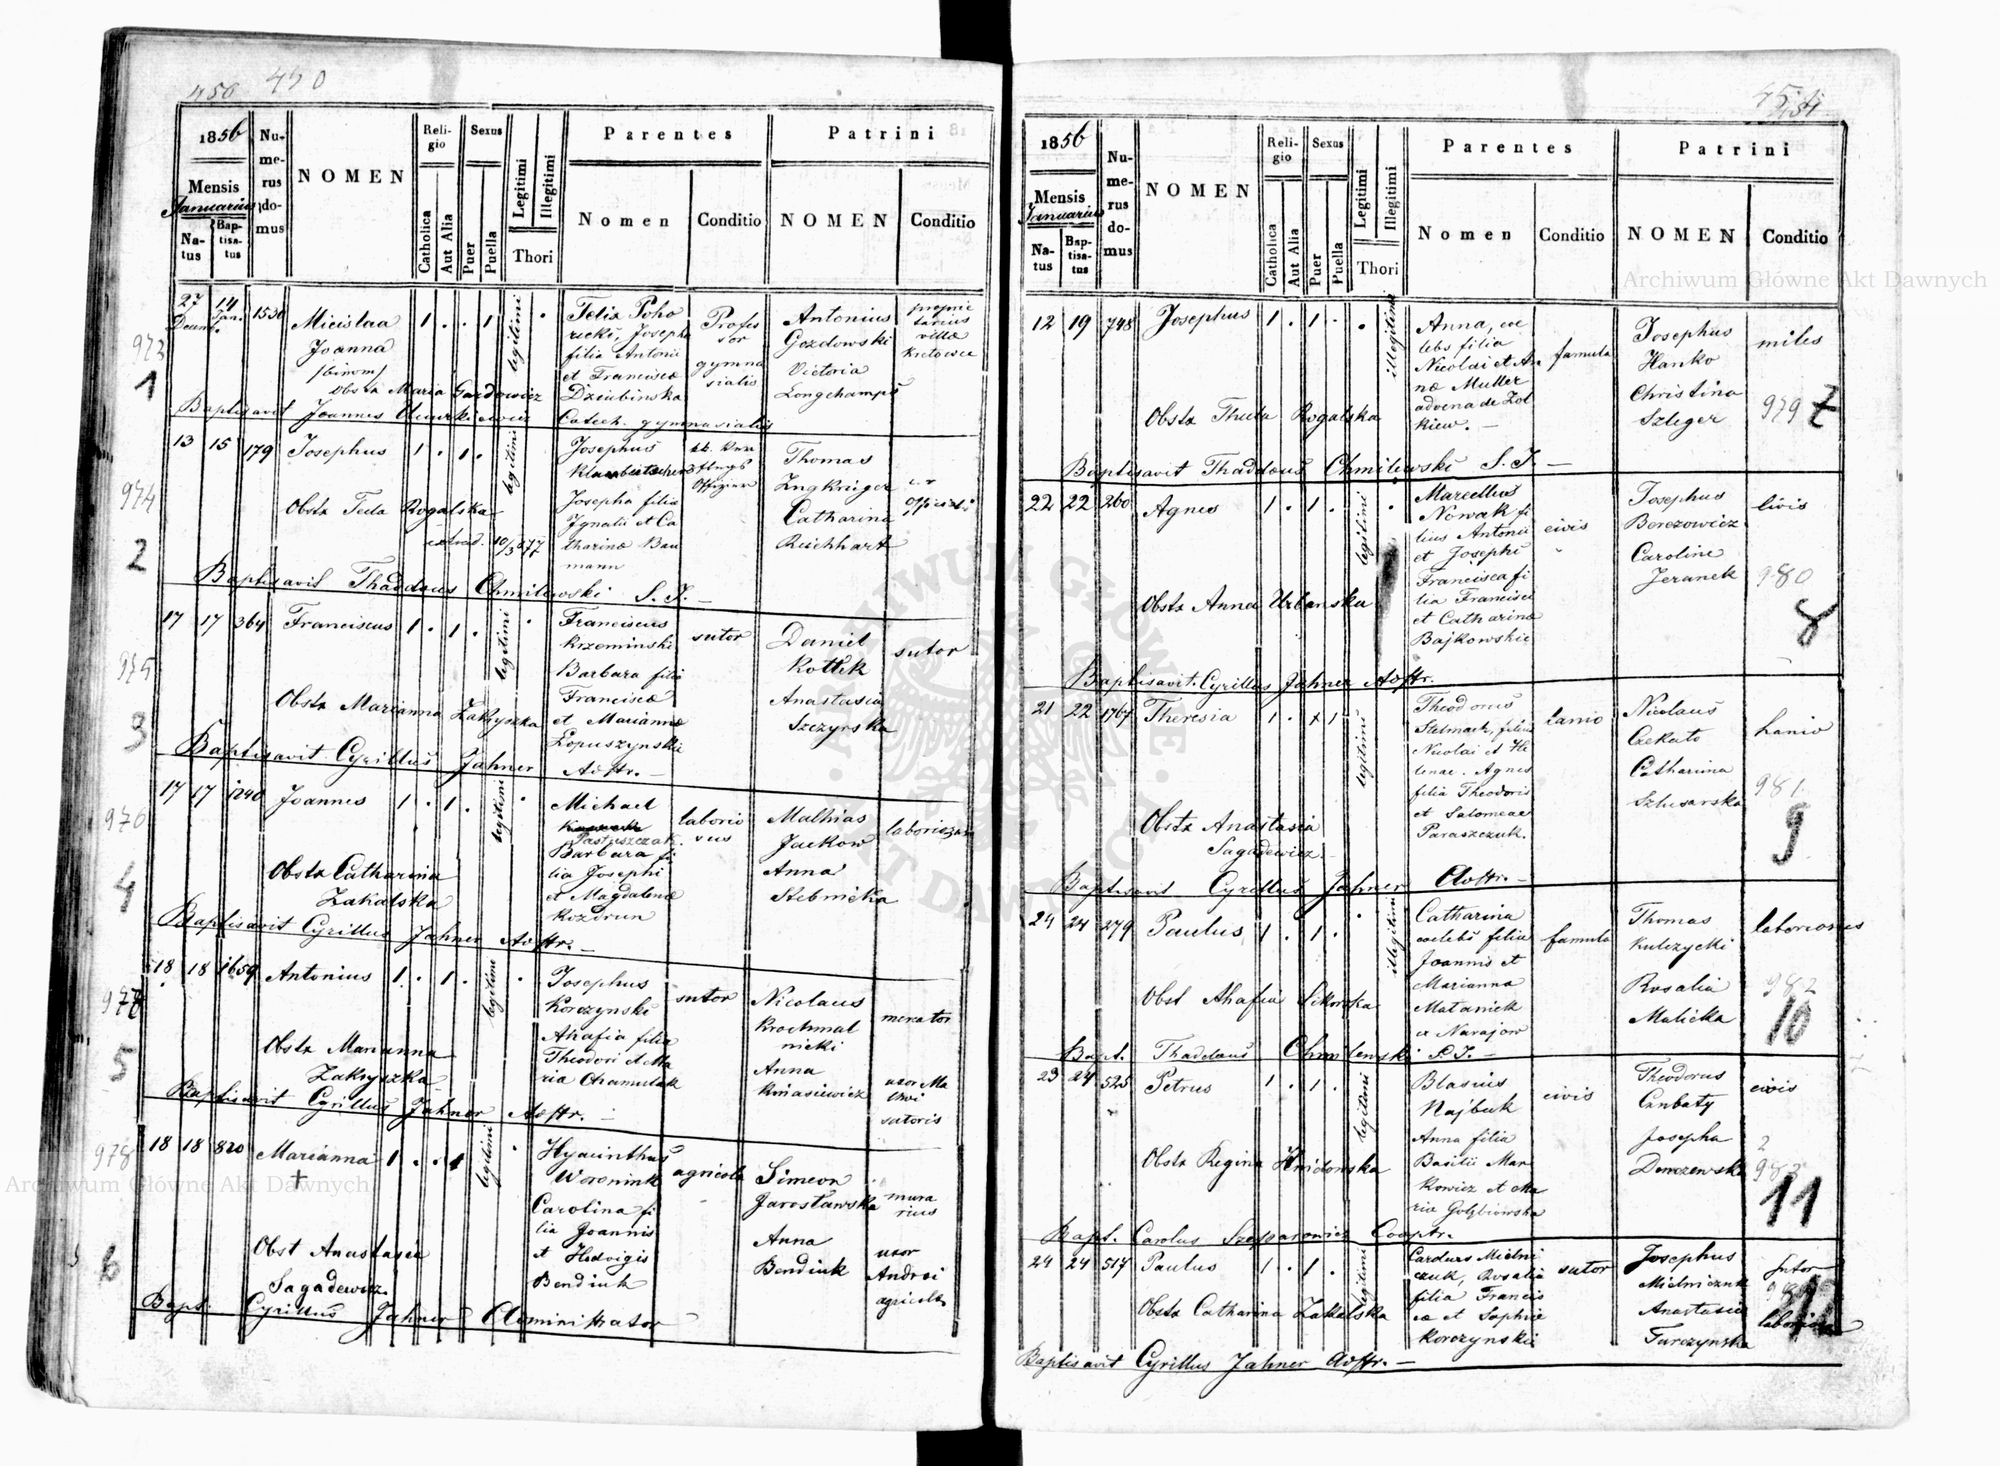 450
1856
Mensis
Januarius
Natus
Baptisatus
Numerus domus
NOMEN
Religio
Catholica
Aut Alia
Sexus
Puer
Puella
Legitimi
Illegitimi
Thori
Parentes
Nomen
Conditio
Patrini
NOMEN
Conditio
973
1
27 Decemb. 14 Jan. 1530
Joanna
1 . . 1
legitimi
Profes
sor
gymna
sialis
Antonius
Gozdowski
Victoria
Longchamps
proprie
tarius
villae
Obstx Maria
Baptisavit Joannes
Catech. gymnasialis
974
2
13 15 179
Josephus
1 . 1 .
legitimi
Josephus
Josepha filia
Ignatii et Ca
tharinae Bau
mann
Thomas
Catharina
Reichhart
Obstx Tecla Rogalska
Baptisavit Thaddaeus Chmilewski S. J. —
975
3
17 17 364
Franciscus
1 . 1 .
legitimi
Franciscus
Krzeminski
Barbara filia
Franciscae
et Mariannae
Lopuszynskie
sutor
Daniel
Kottek
Anastasia
Szczyrska
sutor
Obstx Marianna Zakryszka
Baptisavit Cyrillus Jahner Adstr. —
976
4
17 17 1240
Joannes
1 . 1 .
legitimi
Michael
Pastuszczak
Barbara fi
lia Josephi
et Magdalenae
laborio
sus
Mathias
Jackow
Anna
Stebnicka
Obstx Catharina
Zakalska
Baptisavit Cyrillus Jahner Adstr. —
977
5
18 18 1659
Antonius
1 . 1 .
legitimi
Josephus
Korczynski
Ahafia filia
Theodori et Ma
ria Chamulak
sutor
Nicolaus
Krochmal
nicki
Anna
mercator
sutoris
Obstx Marianna
Zakryszka
Baptisavit Cyrillus Jahner Adstr. —
978
6
18 18 820
Marianna
1 . . 1
legitimi
Hyacinthus
Woronink
Carolina fi
lia Joannis
et Hedvigis
Bendiuk
agricola
Simeon
Jaroslawska
Anna
Bendiuk
mura
rius
uxor
Andrei
agricolae
Obst Anastasia
Sagadewicz
Bapt. Cyrillus Jahner Administrator
451
1856
Mensis
Januarius
Natus
Baptisatus
Numerus domus
NOMEN
Religio
Catholica
Aut Alia
Sexus
Puer
Puella
Legitimi
Illegitimi
Thori
Parentes
Nomen
Conditio
Patrini
NOMEN
Conditio
12 19 748
Josephus
1 . 1 .
illegitimi
Anna, coe
lebs filia
Nicolai et An
nae Muller
advena de Zol
kiew. —
famula
Josephus
Hanko
Christina
Szleger
miles
979
7
Obstx Thecla Rogalska
Baptisavit Thaddaeus Chmilewski S. J. —
22 22 260
Agnes
1 . 1 .
legitimi
Marcellus
Nowak fi
lius Antonii
et Josephi
Francisca fi
lia Francisci
et Catharinae
Bajkowskie
civis
Josephus
Berezowicz
Caroline
Jeranek
civis
980
8
Obstx Anna Urbanska
Baptisavit Cyrillus Jahner Adstr.
21 22 1767
Theresia
legitimi
Theodorus
Stelmach, filius
Nicolai et He
lenae. Agnes
filia Theodoris
et Salomeae
Paraszczuk.
lanio
Nicolaus
Czekalo
Catharina
Szlusarska
lanio
981
9
Obstx Anastasia
Sagadewicz
Baptisavit Cyrillus Jahner Adstr. —
24 24 279
Paulus
1 . 1 .
illegitimi
Catharina
coelebs filia
Joannis et
Marianna
Mataniek
e Narajow
famula
Thomas
Kulczycki
Rosalia
Malicka
laboriosus
982
10
Obst Ahafia Sikorska
Bapt. Thaddaeus Chmilewski S. J. —
23 24 525
Petrus
1 . 1 .
legitimi
Blasius
Najbuk
Anna filia
Basilii Mar
kowicz et Ma
ria Golębiowska
civis
Theodorus
Josepha
civis
983
11
Obstx Regina
Bapt. Carolus Szasparowicz Cooptr.
24 24 517
Paulus
1 . 1 .
legitimi
filia Francis
cae et Sophiae
Korczynskie
sutor
Josephus
Mielniczuk
Anastasia
Turczynska
sutor
12
Obstx Catharina Zakalska
Baptisavit Cyrillus Jahner Adstr. —
Archiwum Główne Akt Dawnych
Archiwum Główne Akt Dawnych